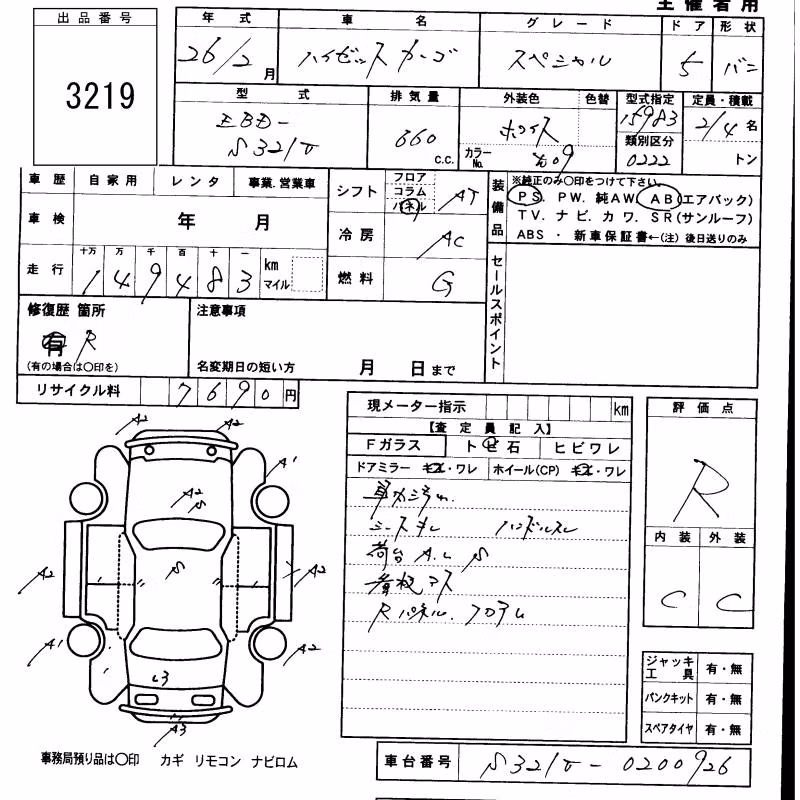 主催者用
出品番号
3219
年式 車名 グレード ドア 形状
26/2月 ハイゼットカーゴ スペシャル 5 バン
型式 排気量 外装色 色替 型式指定 定員・積載
EBD-S321V 660 C.C. ホワイト カラーNo. W09 15983 2/4名
類別区分 0222 トン
車歴 自家用 レンタ 事業.営業車
シフト フロア コラム パネル AT
装備品 ※純正のみ○印をつけて下さい。
PS. PW. 純AW. AB(エアバック)
TV. ナビ. カワ. SR(サンルーフ)
ABS ・ 新車保証書←(注) 後日送りのみ
車検 年 月
冷房 AC
走行 十万 万 千 百 十 一
149483 km マイル
燃料 G
セールスポイント
修復歴 箇所
有 R
(有の場合は○印を)
注意事項
名変期日の短い方 月 日まで
リサイクル料 7690円
現メーター指示 km
【査定員記入】
Fガラス トビ石 ヒビワレ
ドアミラー キズ・ワレ ホイール(CP) キズ・ワレ
車内汚れ
シートキレ ハンドルスレ
荷台 A.L S
看板アス
Rパネル.フロアム
評価点
R
内装 外装
C C
A2 A2
A1
A2
S
S
A2 A2
A1 A2
L3
A3
ジャッキ工具 有・無
パンクキット 有・無
スペアタイヤ 有・無
事務局預り品は○印 カギ リモコン ナビロム
車台番号 S321V-0200926